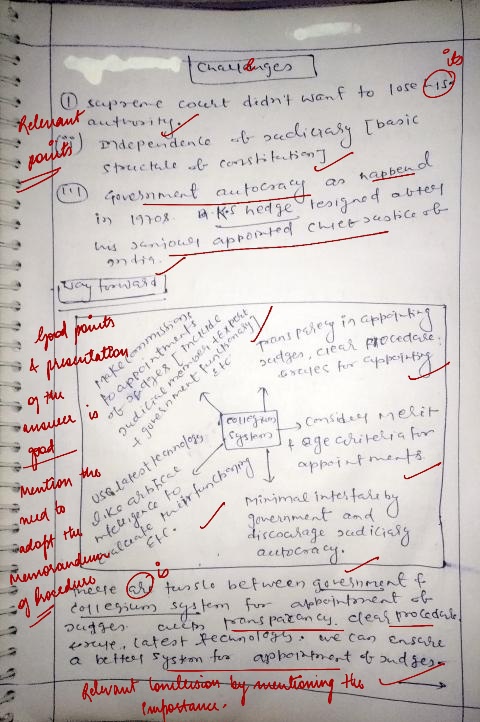 Challenges
its
(i) supreme court didn't want to lose is
authority.
Relevant
points
(ii) Independence of Judiciary [basic
structure of constitution]
(iii) Government autocracy as happend
in 1970s. hedge resigned after
his appointed chief Justice of
India.
Way forward
Good points
& presentation
of the
answer is
good
Mention the
need to
adopt the
Memorandum
of Procedure
Make commissions
to appointments
of Judges [include
Judicial members + Expert
+ government functionary]
etc
transparecy in appointing
Judges, clear procedure,
& rules for appointing
collegium
system
Consider Merit
+ age criteria for
appointments.
use latest technology
like artificial
intelligence to
evaluate their functioning
Etc.
Minimal interfare by
government and
discourage Judiciary
autocracy.
is
these are tussle between government &
collegium system for appointment of
Judges. with transparency, clear procedure
& rule, latest technology. we can ensure
a better system for appointment of Judges.
Relevant Conclusion by mentioning the
importance.